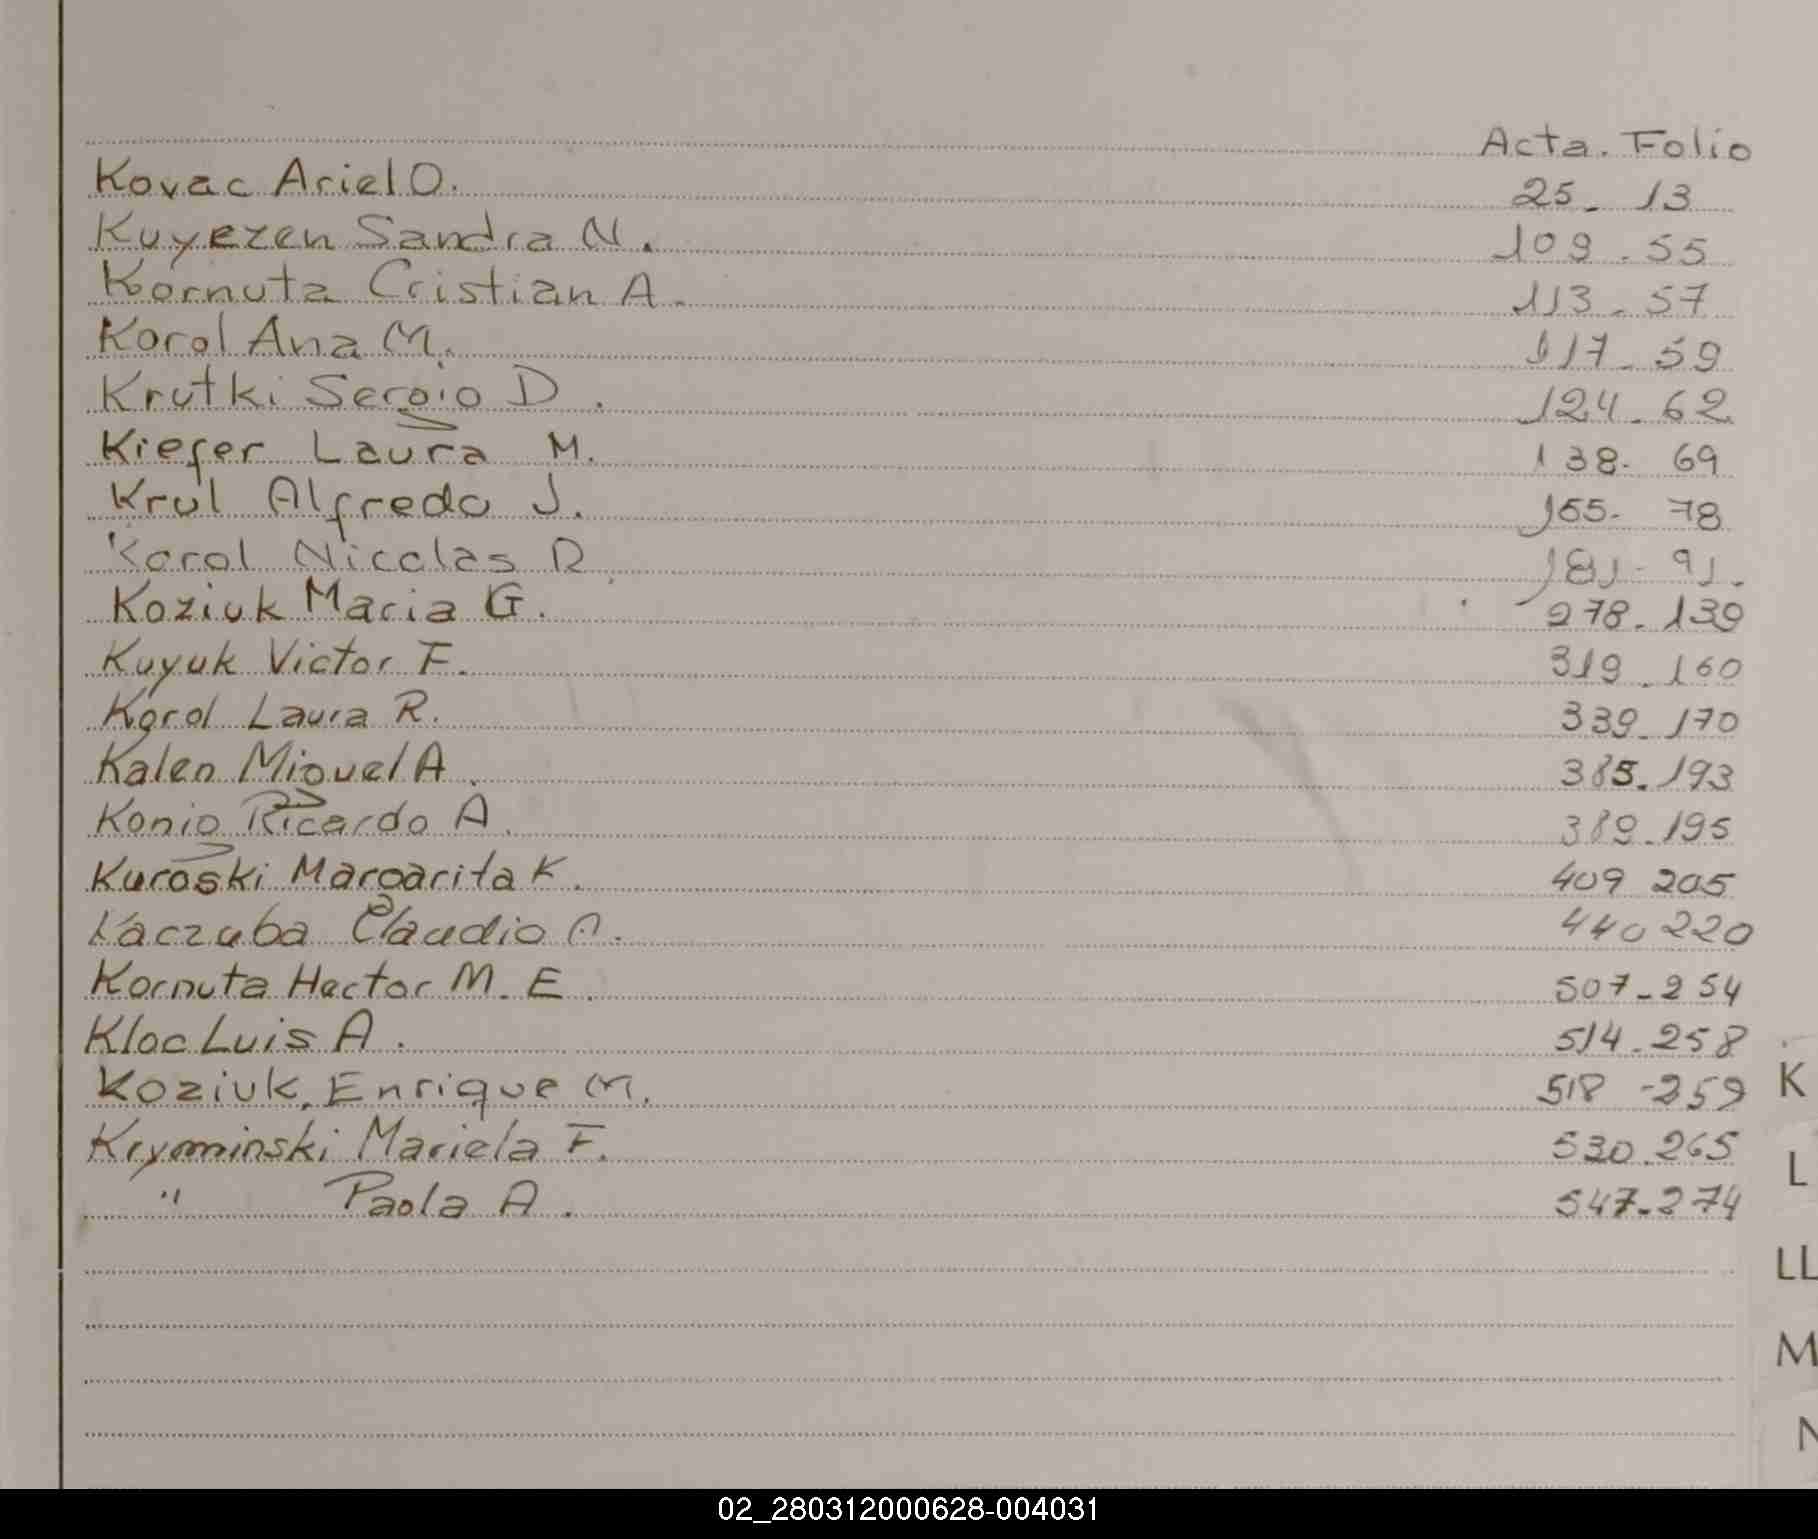 Acta. Folio
Kovac Ariel O. 25. 13
Kuyezen Sandra N. 109. 55
Kornuta Cristian A. 113. 57
Korol Ana M. 117. 59
Krutki Sergio D. 124. 62
Kiefer Laura M. 138. 69
Krul Alfredo J. 155. 78
Korol Nicolas R. 181- 91.
Koziuk Maria G. 278. 139
Kuyuk Victor F. 319. 160
Korol Laura R. 339. 170
Kalen Miguel A. 385. 193
Konig Ricardo A. 389. 195
Kuroski Margarita K. 409 205
Kaczuba Claudio A. 440 220
Kornuta Hector M. E. 507-254
Kloc Luis A. 514. 258
Koziuk, Enrique M. 518 -259
Kryminski Mariela F. 530. 265
" Paola A. 547. 274
K
L
LL
M
N
02_280312000628-004031